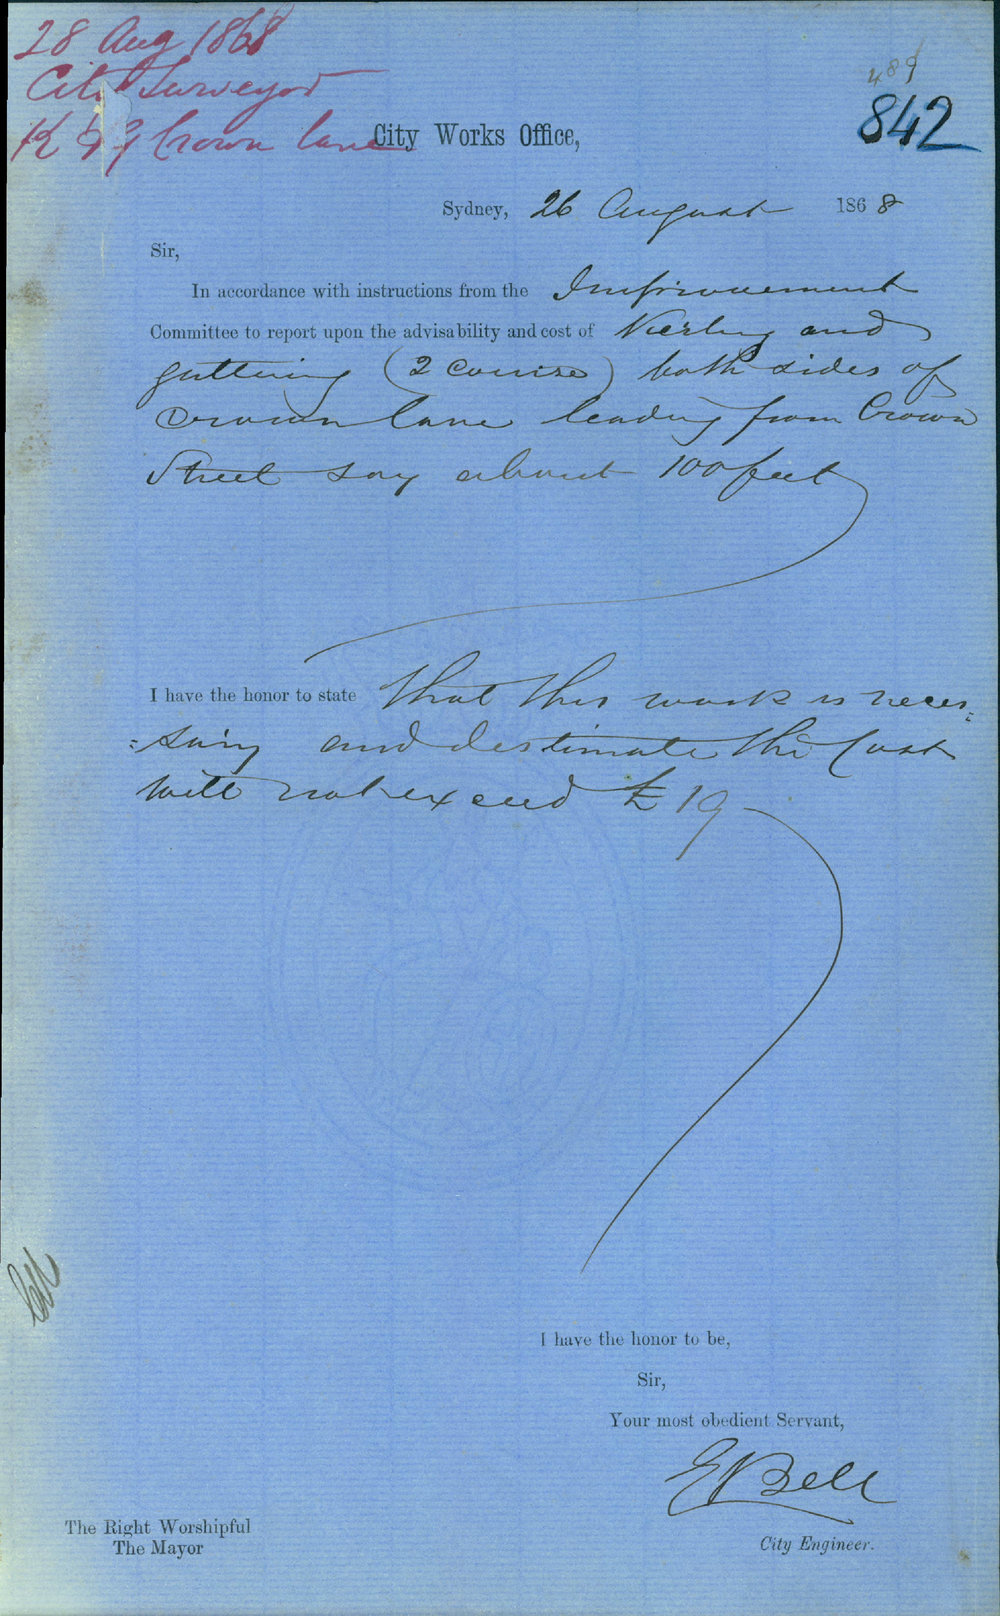 28 Aug 1868
City Surveyor
K & G Crown lane
489
842
City Works Office,
Sydney, 26 August 1868
Sir,
In accordance with instructions from the Improvement
Committee to report upon the advisability and cost of Kerbing and
guttering (2 course) both sides of
Crown lane leading from Crown
Street say about 100 feet
I have the honor to state that this work is neces=
=sary and estimate the Cost
will not exceed £19
I have the honor to be,
Sir,
Your most obedient Servant,
E Bell
City Engineer.
The Right Worshipful
The Mayor